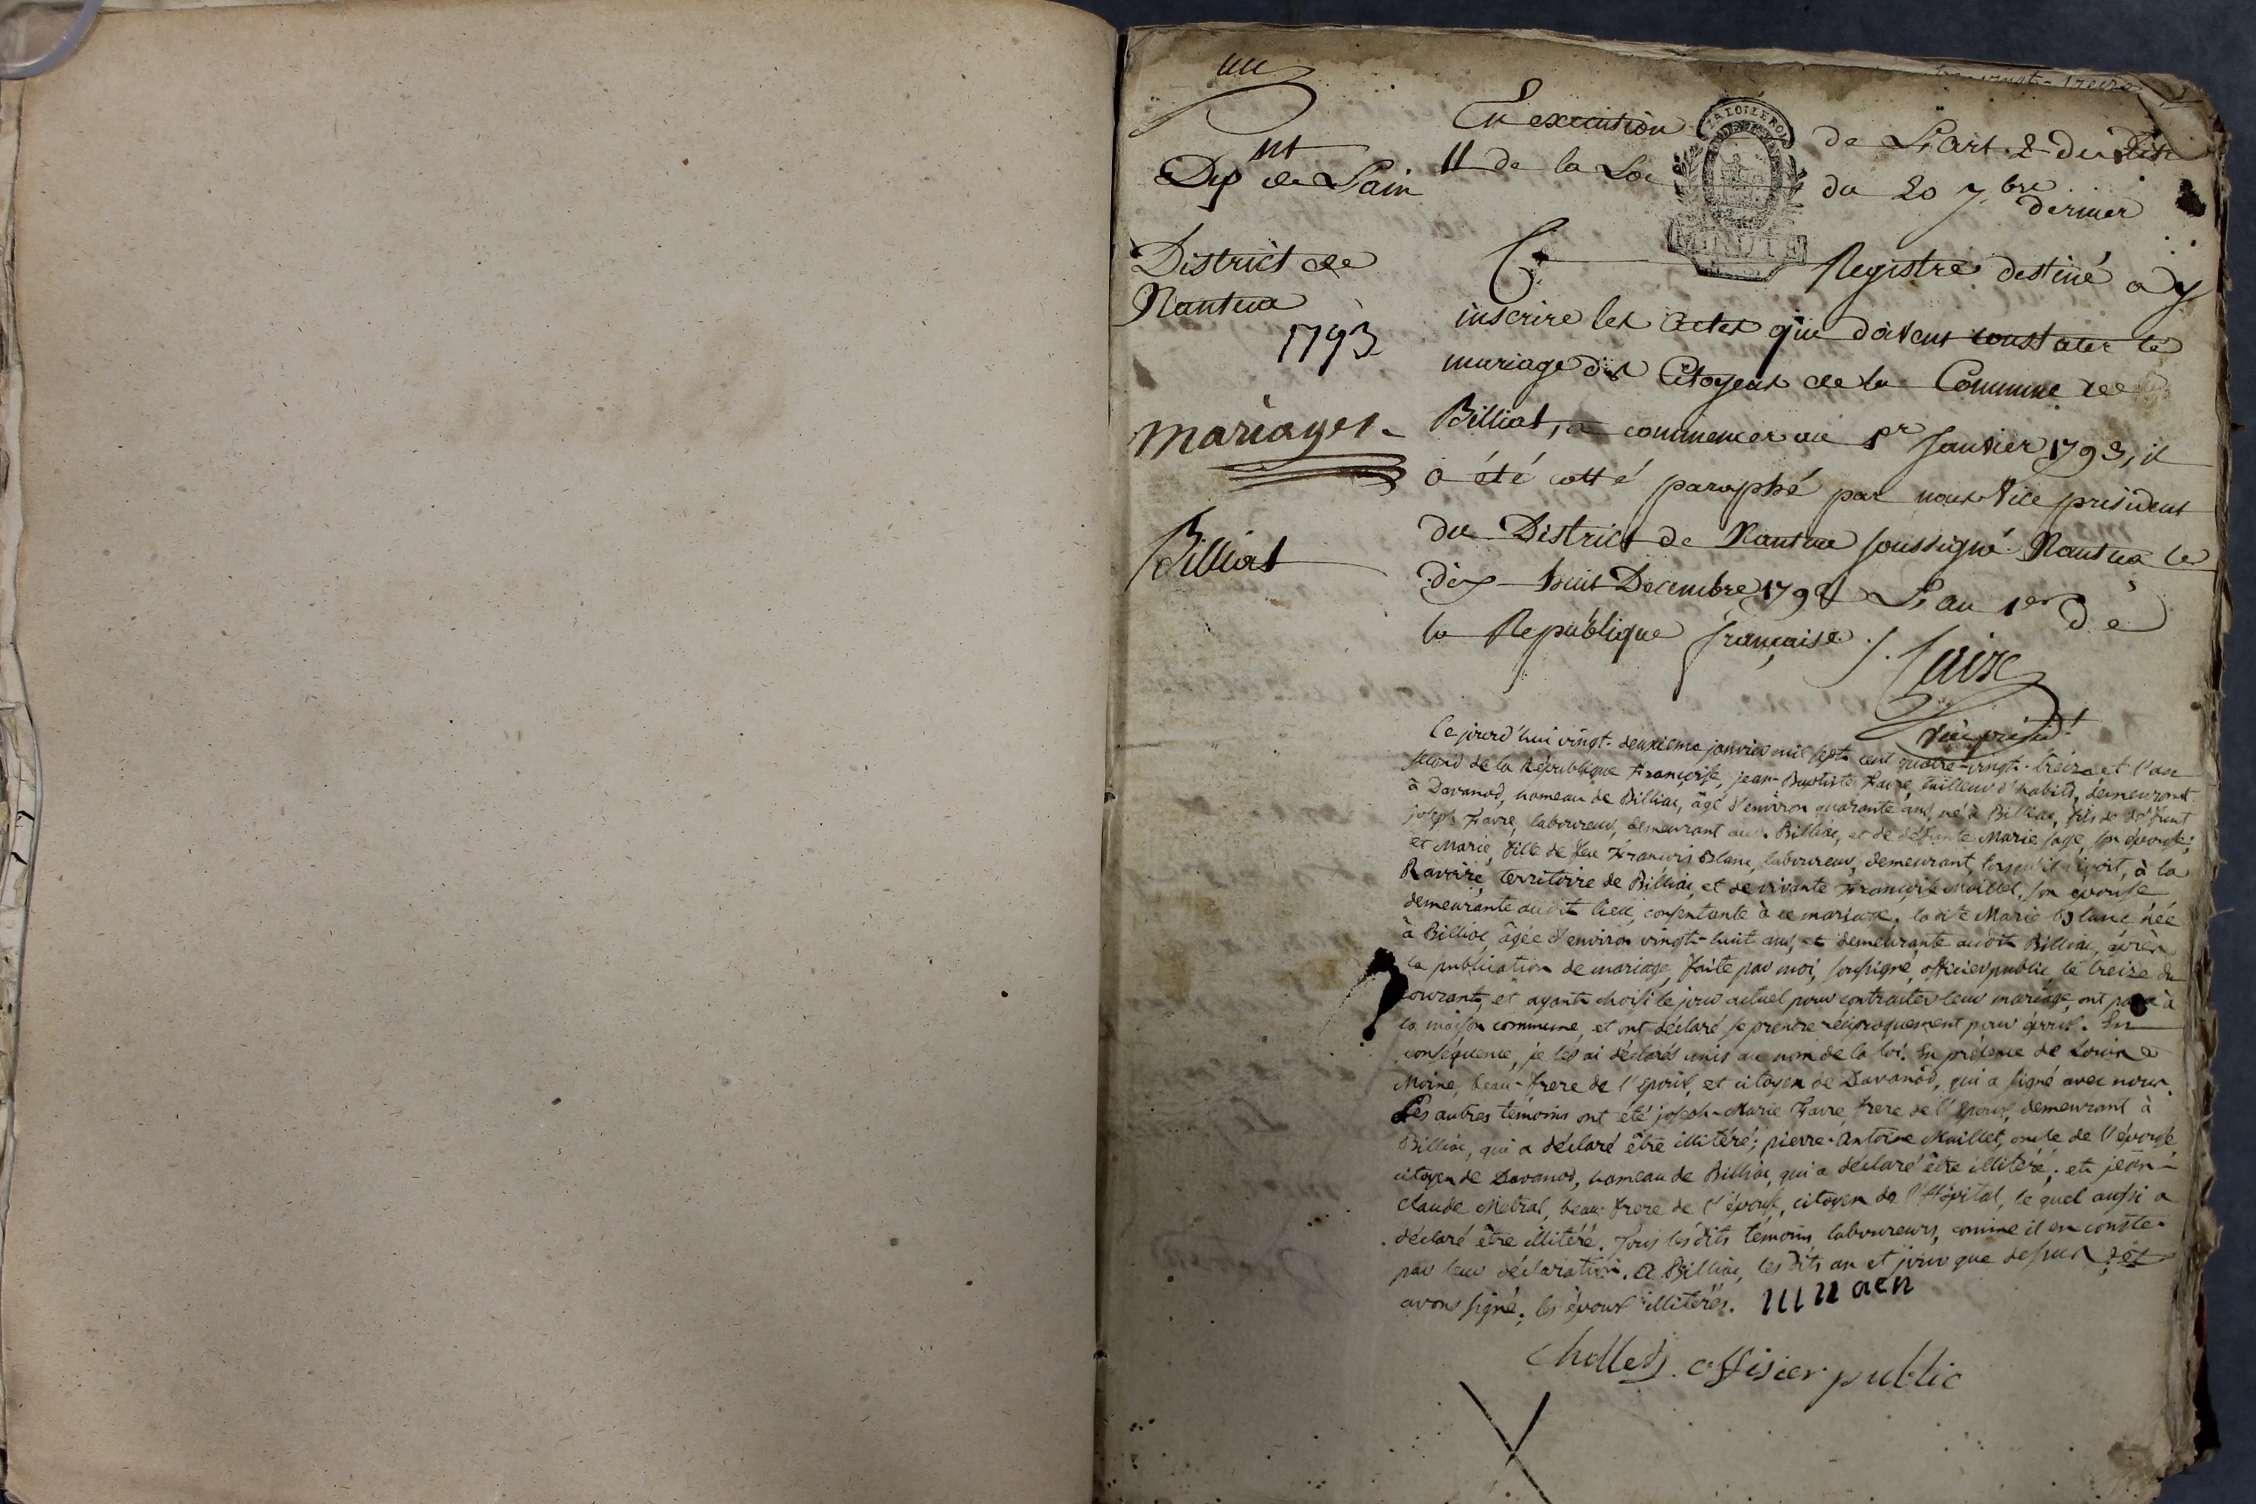 un
Dép.nt de Lain
District de
Nantua
1793
Mariages.
Billiat
En execution de L'art. 2 du Titre
II de la Loi du 20 7.bre dernier
LA LOI LE ROI
MINUTE
Ce Registre destiné a y
inscrire les actes qui doivent constater le
mariage des Citoyens de la Commune de
Billiat, a commencer au 1er Janvier 1793, il
a été cotté paraphé par nous Vice président
du District de Nantua soussigné Nantua le
dix-huit Decembre 1792 L'an 1er de
la République française.
Vice présid.t
Ce jourd'hui vingt-deuxieme janvier mil sept cent quatre-vingt-treize et l'an
second de la République Françoise, jean-Baptiste Favre, tailleur d'habits, demeurant
à Davanod, hameau de Billiac, âgé d'environ quarante ans, né à Billiac, fils de défunt
joseph Favre, laboureur, demeurant audit Billiac, et de défunte Marie sage, son épouse;
et Marie, fille de feu François Blanc, laboureur, demeurant, lorsqu'il vivoit, à la
Ravoire, territoire de Billiac, et de vivante Françoise Maillet, son epouse
demeurante audit lieu, consentante à ce mariage. la dite Marie Blanc née
à Billiac, âgée d'environ vingt-huit ans, et demeurante audit Billiac, après
la publication de mariage, faite par moi, soussigné, officier public, le treize du
courant, et ayant choisi le jour actuel pour contracter leur mariage, ont passé à
la maison commune, et ont déclaré se prendre réciproquement pour époux. En
conséquence, je les ai déclarés unis au nom de la loi. En présence de Louis
Moine, beau-frere de l'époux, et citoyen de Davanod, qui a signé avec nous.
Les autres témoins ont été joseph-Marie Favre frere de l'époux, demeurant à
Billiac, qui a déclaré être illitéré; pierre-Antoine Maillet, oncle de l'épouse
citoyen de Davanod, hameau de Billiac, qui a déclaré être illitéré; et jean-
Claude Métral, beau-frere de l'épouse, citoyen de l'Hôpital, le quel aussi a
déclaré être illitéré. Tous lesdits témoins laboureurs, comme il en conste
par leur déclaration. A Billiac, les dits an et jour que dessus, et
avons signé; les époux illitérés.
Chollet officier public